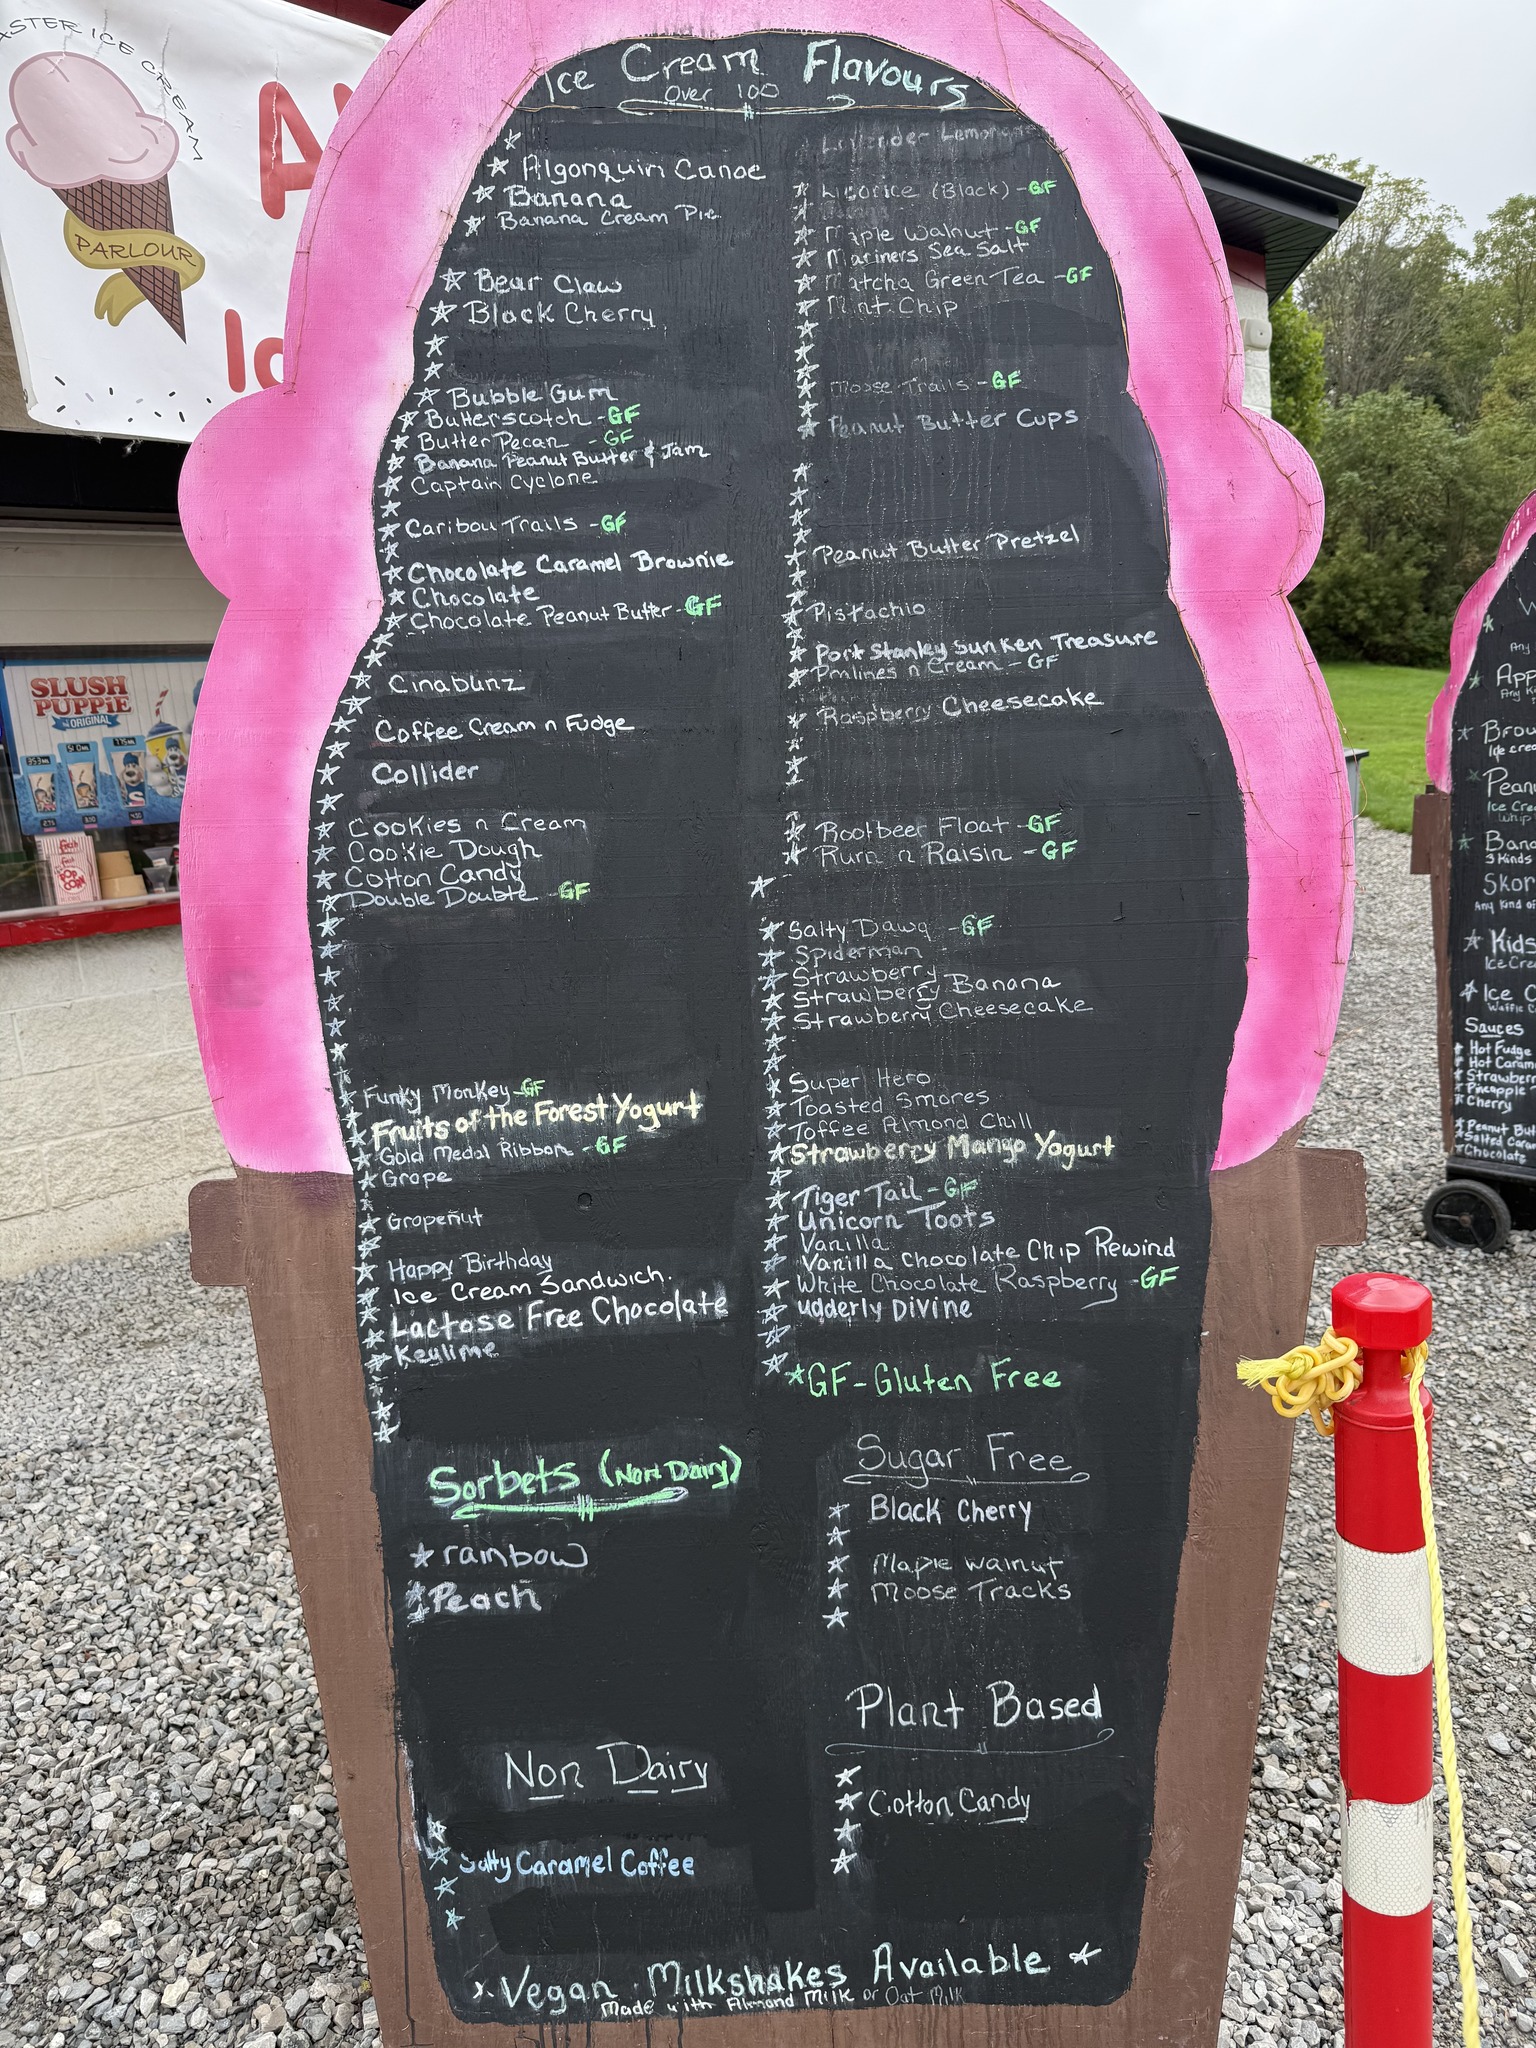 ASTER ICE CREAM
PARLOUR
SLUSH
PUPPiE
ORIGINAL
Ice Cream Flavours
Over 100
Algonquin Canoe
Banana
Banana Cream Pie
Bear Claw
Black Cherry
Bubble Gum
Butterscotch - GF
Butter Pecan - GF
Banana Peanut Butter & Jam
Captain Cyclone
Caribou Trails - GF
Chocolate Caramel Brownie
Chocolate
Chocolate Peanut Butter - GF
Cinabunz
Coffee Cream n Fudge
Collider
Cookies n Cream
Cookie Dough
Cotton Candy
Double Double - GF
Funky Monkey - GF
Fruits of the Forest Yogurt
Gold Medal Ribbon - GF
Grape
Grapenut
Happy Birthday
Ice Cream Sandwich.
Lactose Free Chocolate
Keylime
Licorice (Black) - GF
Maple Walnut - GF
Mariners Sea Salt
Matcha Green Tea - GF
Mint Chip
Moose Trails - GF
Peanut Butter Cups
Peanut Butter Pretzel
Pistachio
Port Stanley Sunken Treasure
Pralines n Cream - GF
Raspberry Cheesecake
Rootbeer Float - GF
Rum n Raisin - GF
Salty Dawg - GF
Spiderman
Strawberry
Strawberry Banana
Strawberry Cheesecake
Super Hero
Toasted Smores
Toffee Almond Chill
Strawberry Mango Yogurt
Tiger Tail - GF
Unicorn Toots
Vanilla
Vanilla Chocolate Chip Rewind
White Chocolate Raspberry - GF
udderly Divine
GF - Gluten Free
Sorbets (Non Dairy)
rainbow
Peach
Sugar Free
Black Cherry
Maple walnut
Moose Tracks
Non Dairy
Salty Caramel Coffee
Plant Based
Cotton Candy
Vegan Milkshakes Available
Made with Almond Milk or Oat Milk
Sauces
Hot Fudge
Cherry
Chocolate